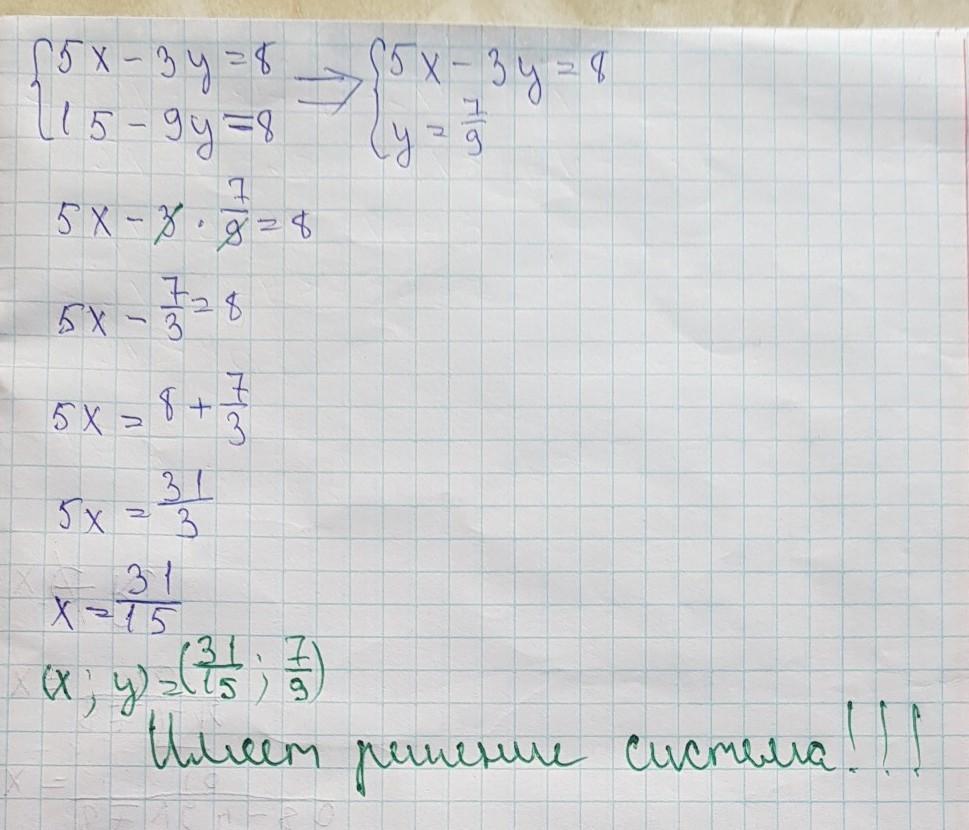 {5x - 3y = 8 ⟹ {5x - 3y = 8
{15 - 9y = 8 {y = 7/9
5x - 3 · 7/9 = 8
5x - 7/3 = 8
5x = 8 + 7/3
5x = 31/3
x = 31/15
(x; y) = (31/15; 7/9)
Имеет решение система!!!